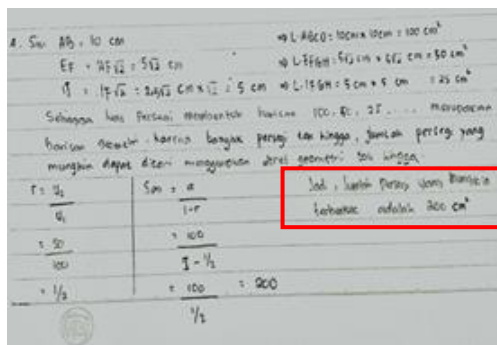 4. Sisi AB = 10 cm ⇒ L.ABCD = 10cm x 10cm = 100 cm²
EF = AF√2 = 5√2 cm ⇒ L.EFGH = 5√2 cm x 5√2 cm = 50 cm²
IJ = IF√2 = 2,5√2 cm x √2 = 5 cm ⇒ L.IJGH = 5 cm x 5 cm = 25 cm²
Sehingga luas persegi membentuk barisan 100, 50, 25, .... merupakan
barisan geometri. karena banyak persegi tak hingga, jumlah persegi yang
mungkin dapat dicari menggunakan deret geometri tak hingga.
r = U₂ / U₁
= 50 / 100
= 1/2
S∞ = a / 1-r
= 100 / 1 - 1/2
= 100 / 1/2 = 200
Jadi, jumlah persegi yang mungkin
terbentuk adalah 200 cm²